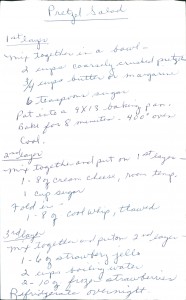 Pretzel Salad
1st Layer
Mix together in a bowl -
2 cups coarsely crushed pretzels
3/4 cups butter or margarine
6 teaspoons sugar
Pat into a 9X13 baking pan.
Bake for 8 minutes - 400° oven
Cool.
2nd layer
Mix together and put on 1st layer -
1 - 8 oz cream cheese, room temp.
1 cup sugar
Fold in -
1 - 8 oz cool whip, thawed
3rd layer
Mix together and put on 2nd layer -
1 - 6 oz strawberry jello
2 cups boiling water
2 - 10 oz frozen strawberries
Refrigerate overnight.